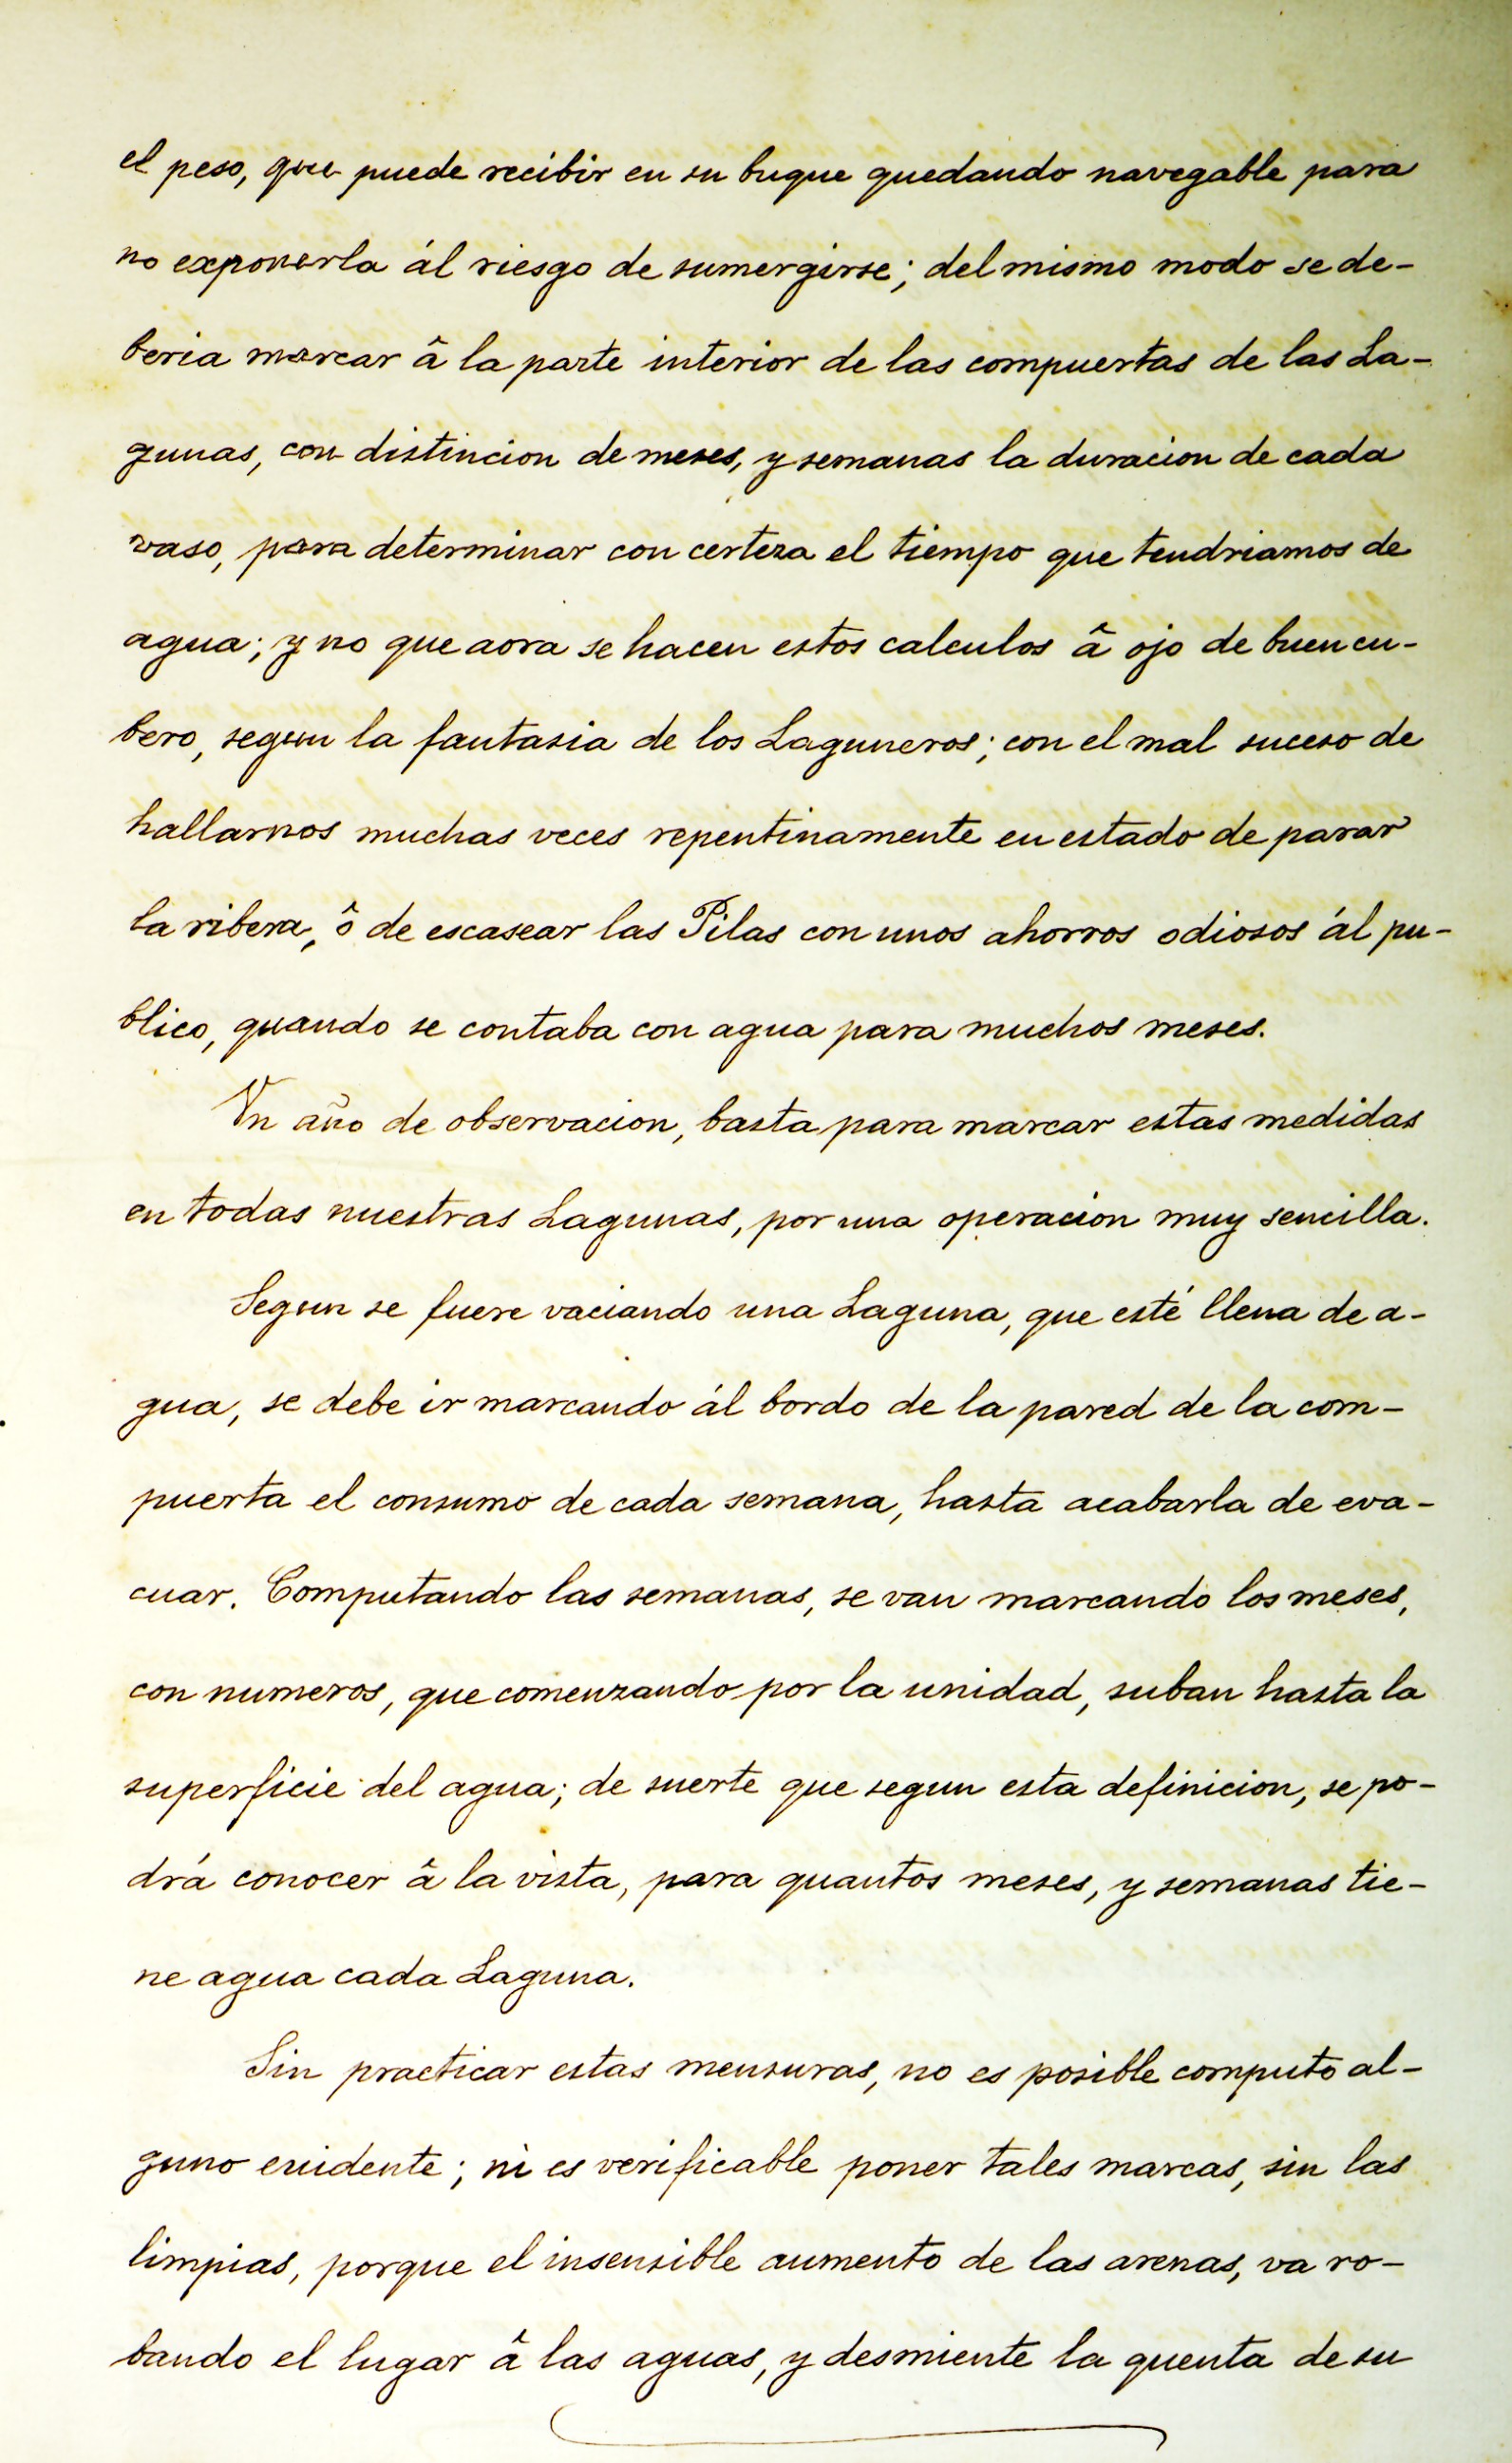 el peso, que puede recibir en su buque quedando navegable para
no exponerla ál riesgo de sumergirse; del mismo modo se de-
beria marcar â la parte interior de las compuertas de las La-
gunas, con distincion de meses, y semanas la duracion de cada
vaso, para determinar con certeza el tiempo que tendriamos de
agua; y no que aora se hacen estos calculos â ojo de buen cu-
bero, segun la fantasia de los Laguneros; con el mal suceso de
hallarnos muchas veces repentinamente en estado de parar
la ribera, ô de escasear las Pilas con unos ahorros odiosos ál pu-
blico, quando se contaba con agua para muchos meses.
Vn año de observacion, basta para marcar estas medidas
en todas nuestras Lagunas, por una operacion muy sencilla.
Segun se fuere vaciando una Laguna, que esté llena de a-
gua, se debe ir marcando ál bordo de la pared de la com-
puerta el consumo de cada semana, hasta acabarla de eva-
cuar. Computando las semanas, se van marcando los meses,
con numeros, que comenzando por la unidad, suban hasta la
superficie del agua; de suerte que segun esta definicion, se po-
drá conocer â la vista, para quantos meses, y semanas tie-
ne agua cada Laguna.
Sin practicar estas mensuras, no es posible computo al-
guno euidente; ni es verificable poner tales marcas, sin las
limpias, porque el insensible aumento de las arenas, va ro-
bando el lugar â las aguas, y desmiente la quenta de su